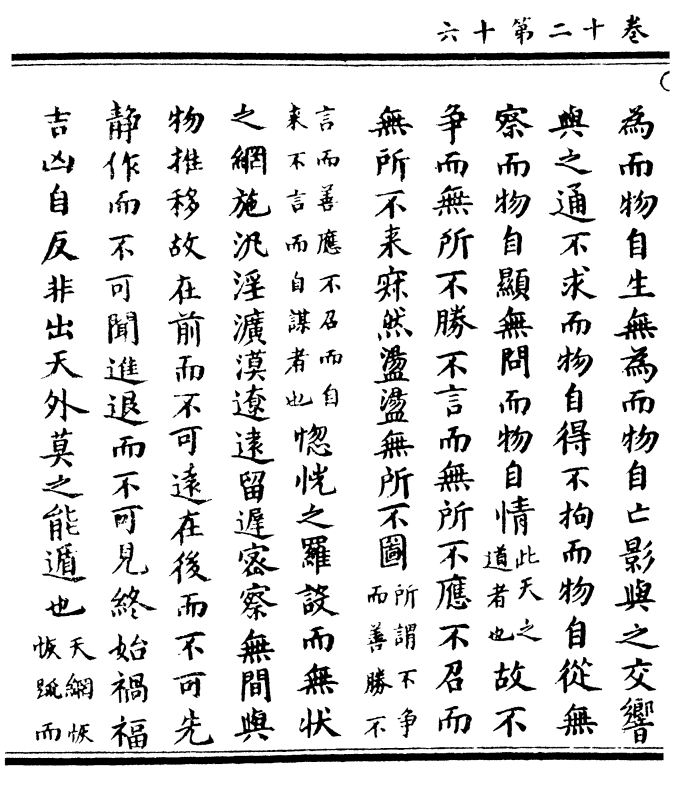 卷十二第十六
為而物自生無為而物自亡影與之交響
與之通不求而物自得不拘而物自從無
察而物自顯無問而物自情此天之道者也故不
争而無所不勝不言而無所不應不召而
無所不来寂然盪盪無所不圖所謂不争而善勝不
言而善應不召而自来不言而自謀者也惚恍之羅設而無状
之網施汎淫瀇漠遼遠留遲宻察無間與
物推移故在前而不可遠在後而不可先
静作而不可聞進退而不可見終始禍福
吉凶自反非出天外莫之能遁也天網恢恢踈而